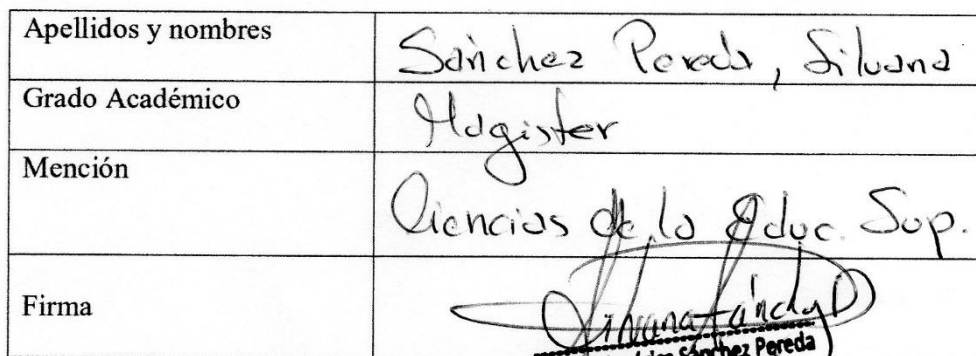 Apellidos y nombres
Sánchez Pereda, Silvana
Grado Académico
Magister
Mención
Ciencias de la Educ. Sup.
Firma
Silvana Sánchez P
Sánchez Pereda